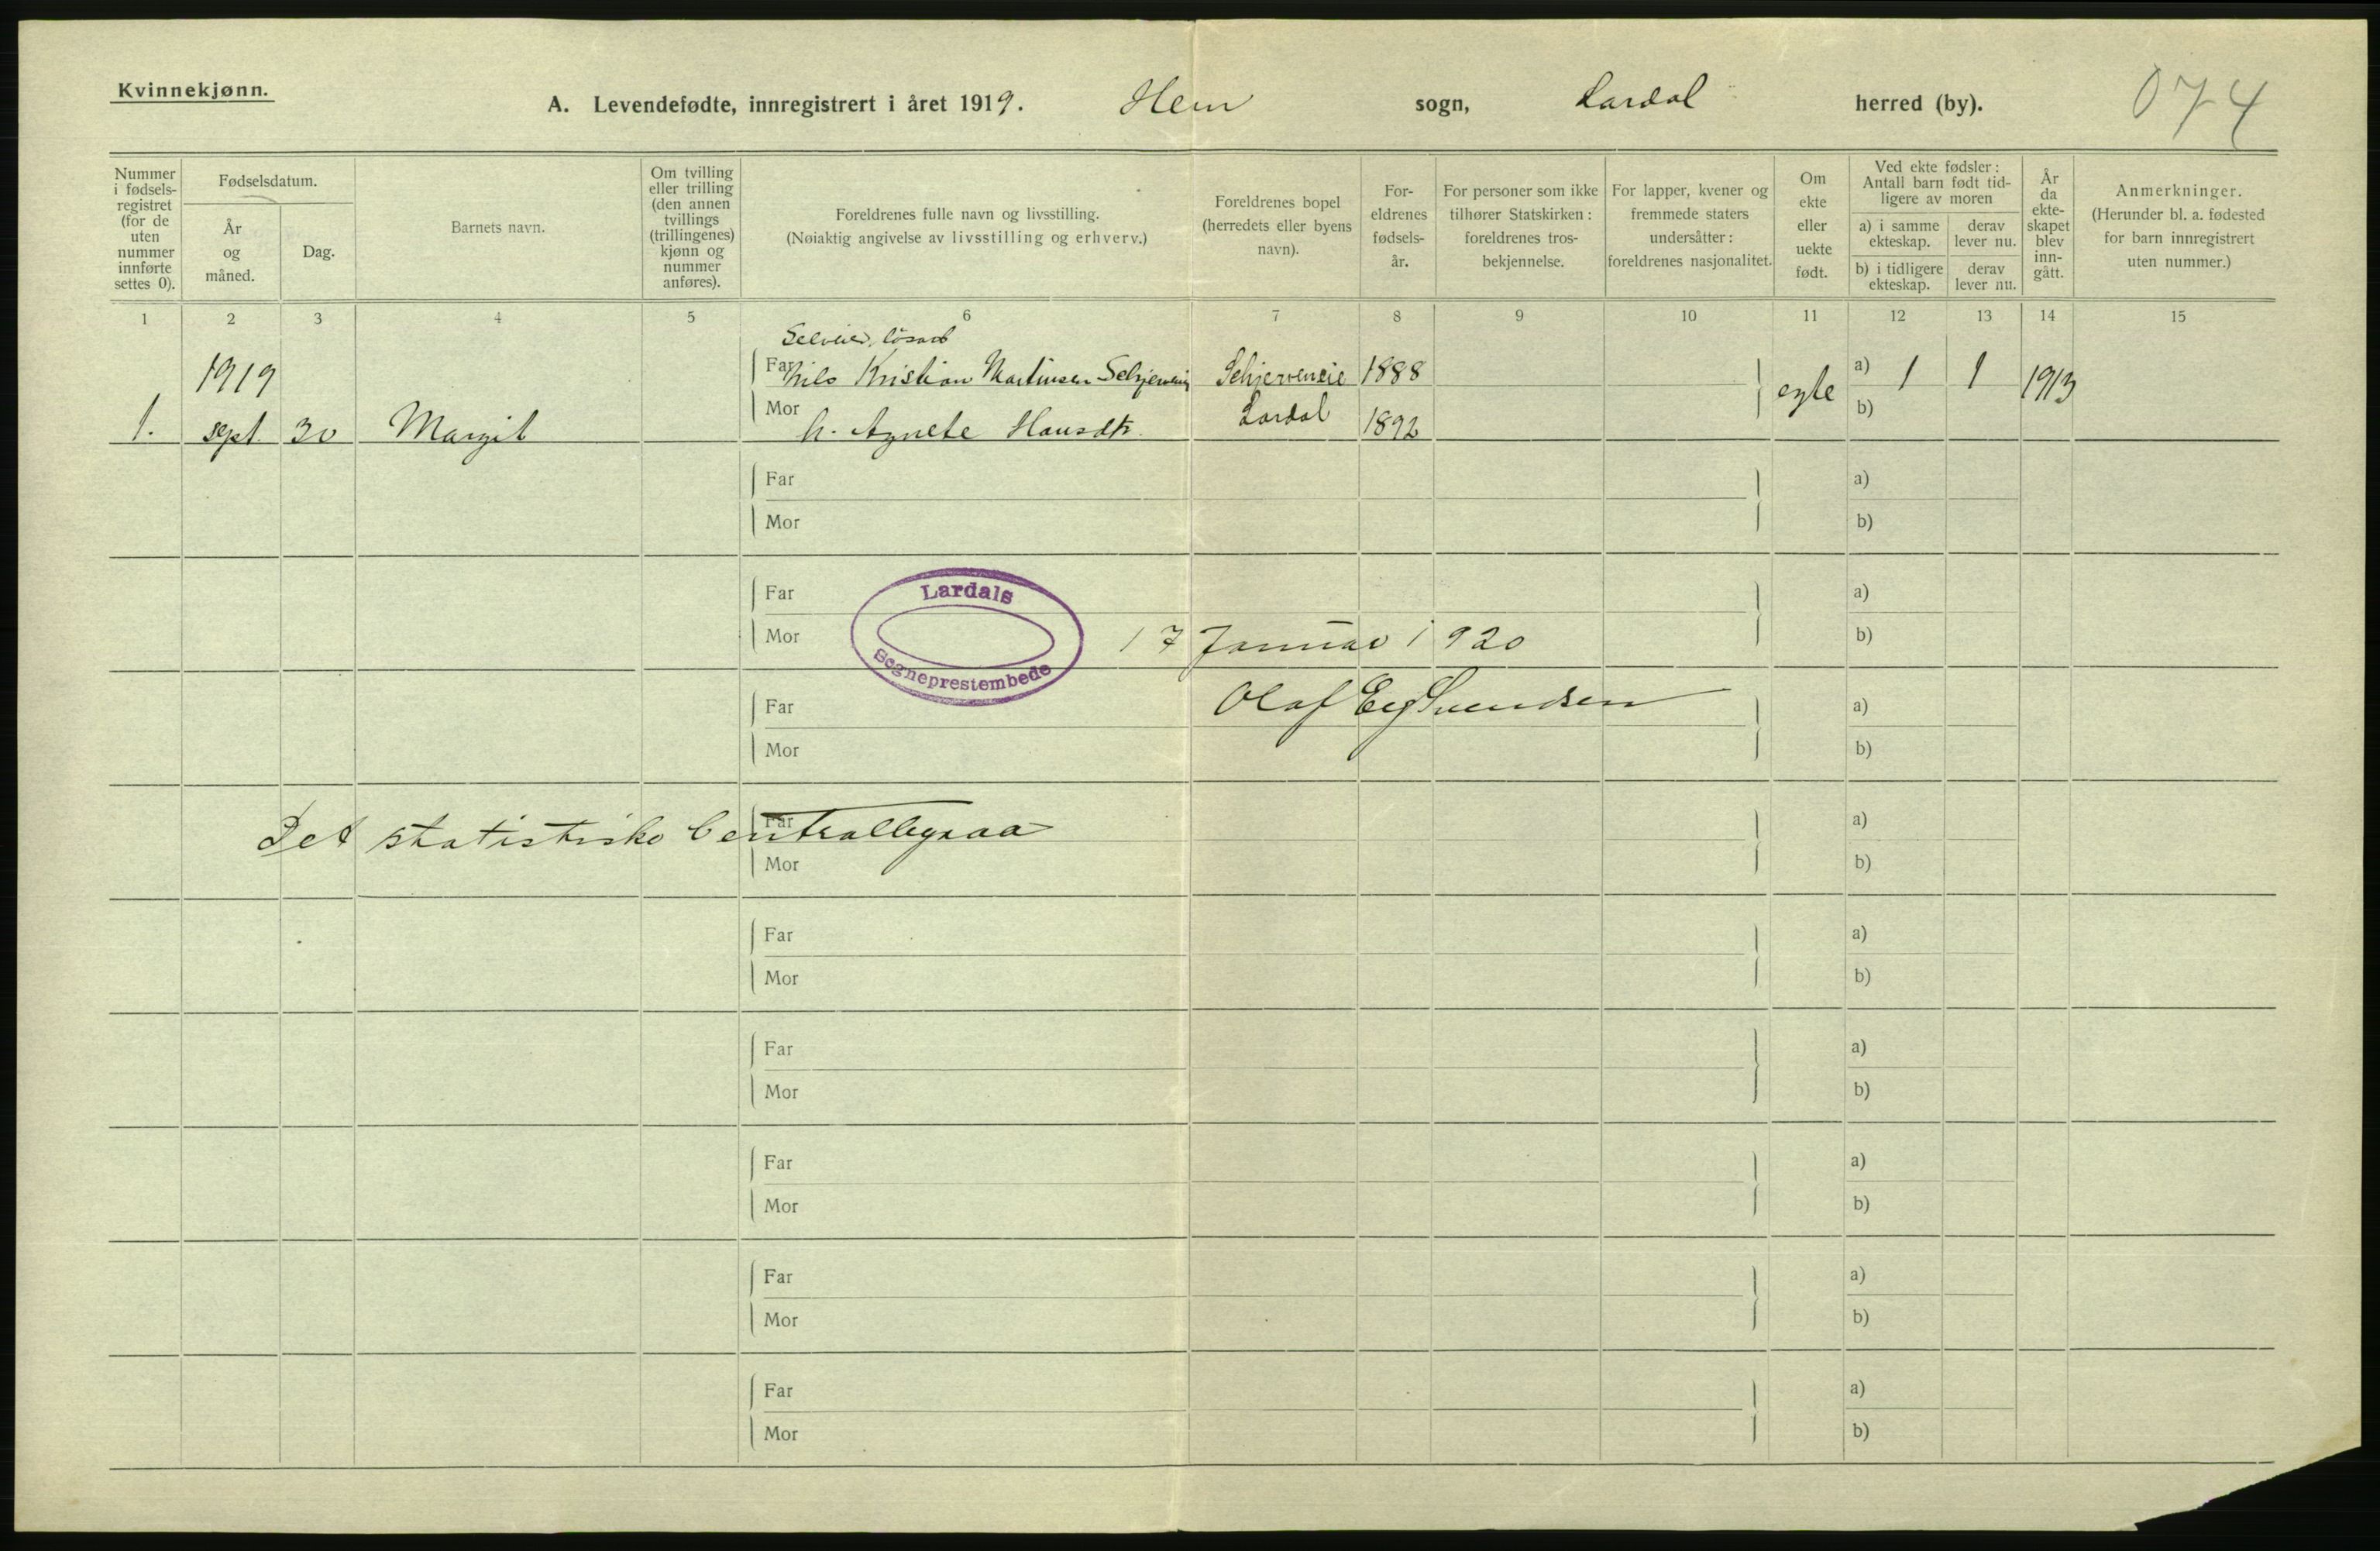 Kvinnekjønn.
A. Levendefødte, innregistrert i året 1919. Hem sogn, Lardal herred (by). 074
Nummer i fødsels-registret (for de uten nummer innførte settes 0).
Fødselsdatum.
År og måned.
Dag.
Barnets navn.
Om tvilling eller trilling (den annen tvillings (trillingenes) kjønn og nummer anføres).
Foreldrenes fulle navn og livsstilling.
(Nøiaktig angivelse av livsstilling og erhverv.)
Foreldrenes bopel (herredets eller byens navn).
For-eldrenes fødsels-år.
For personer som ikke tilhører Statskirken: foreldrenes tros-bekjennelse.
For lapper, kvener og fremmede staters undersåtter: foreldrenes nasjonalitet.
Om ekte eller uekte født.
Ved ekte fødsler: Antall barn født tid-ligere av moren
a) i samme ekteskap.
derav lever nu.
b) i tidligere ekteskap.
derav lever nu.
År da ekte-skapet blev inn-gått.
Anmerkninger.
(Herunder bl. a. fødested for barn innregistrert uten nummer.)
1 2 3 4 5 6 7 8 9 10 11 12 13 14 15
Selveier,
1919 Far Nils Kristian Martinsen Schjerveneie 1888 a) 1 1 1913
egte
1. sept. 30 Margit Mor h. Agnete Hansdtr. Lardal 1892 b)
Far a)
Mor b)
Far a)
Lardals
Sogneprestembede
Mor 17 Januar 1920 b)
Far Olaf Svendsen a)
Mor b)
Det statistiske Centralbyraa
Far a)
Mor b)
Far a)
Mor b)
Far a)
Mor b)
Far a)
Mor b)
Far a)
Mor b)
Far a)
Mor b)